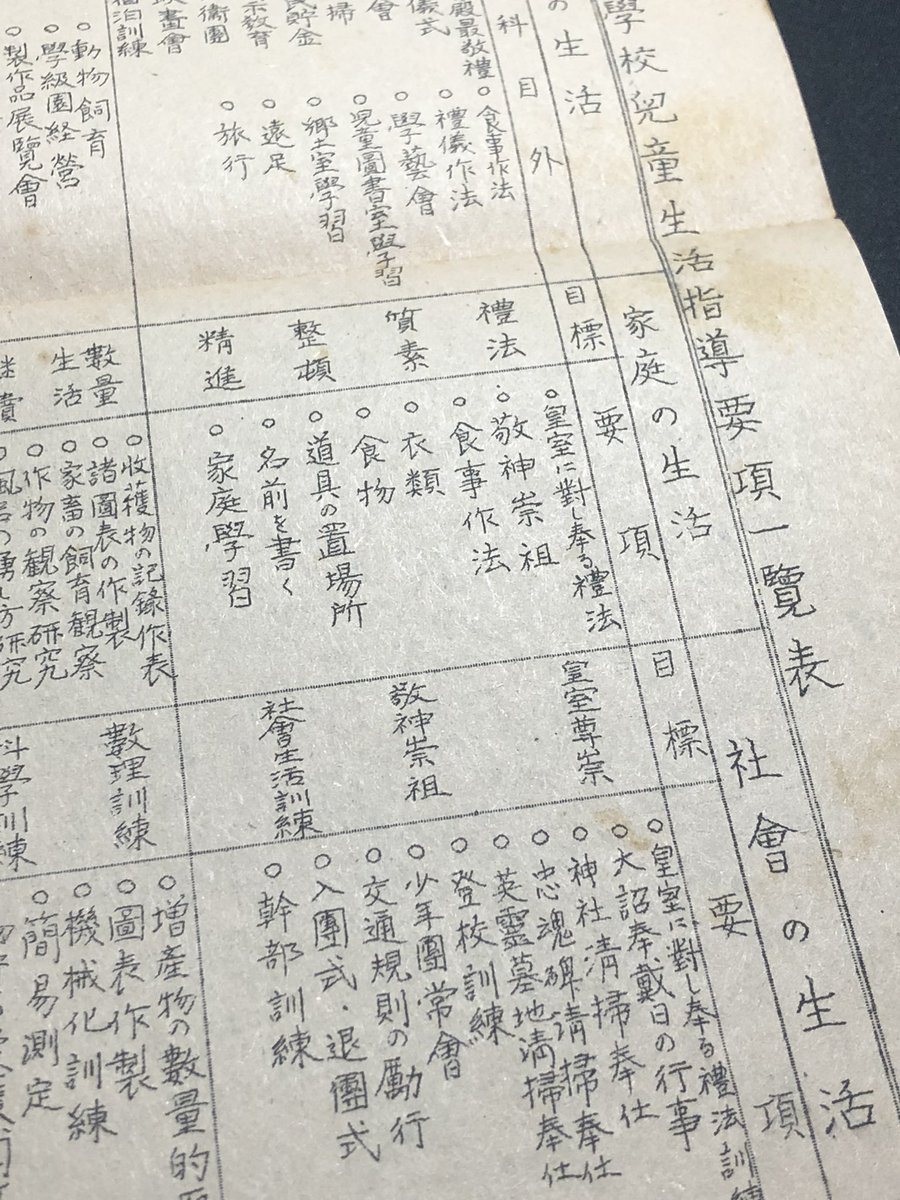 學校兒童生活指導要項一覽表
の生活
科目外
殿最敬禮
儀式
會
掃
貯金
教育
衞團
畫會
宿泊訓練
○食事作法
○禮儀作法
○學藝會
○児童圖書室學習
○郷土室學習
○遠足
○旅行
○動物飼育
○學級園経營
○製作品展覽會
家庭の生活
目標
要項
禮法
質素
整頓
精進
○皇室に對し奉る禮法
○敬神崇祖
○食事作法
○衣類
○食物
○道具の置場所
○名前を書く
○家庭學習
數量
生活
○收獲物の記錄作表
○諸圖表の作製
○家畜の飼育観察
○作物の観察研究
研究
社會の生活
目標
要項
皇室尊崇
敬神崇祖
社會生活訓練
○皇室に對し奉る禮法訓練
○大詔奉戴日の行事
○神社清掃奉仕
○忠魂碑清掃奉仕
○英靈墓地清掃奉仕
○登校訓練
○少年團常會
○交通規則の勵行
○入團式・退團式
○幹部訓練
數理訓練
科學訓練
○増産物の數量的
○圖表作製
○機械化訓練
○簡易測定